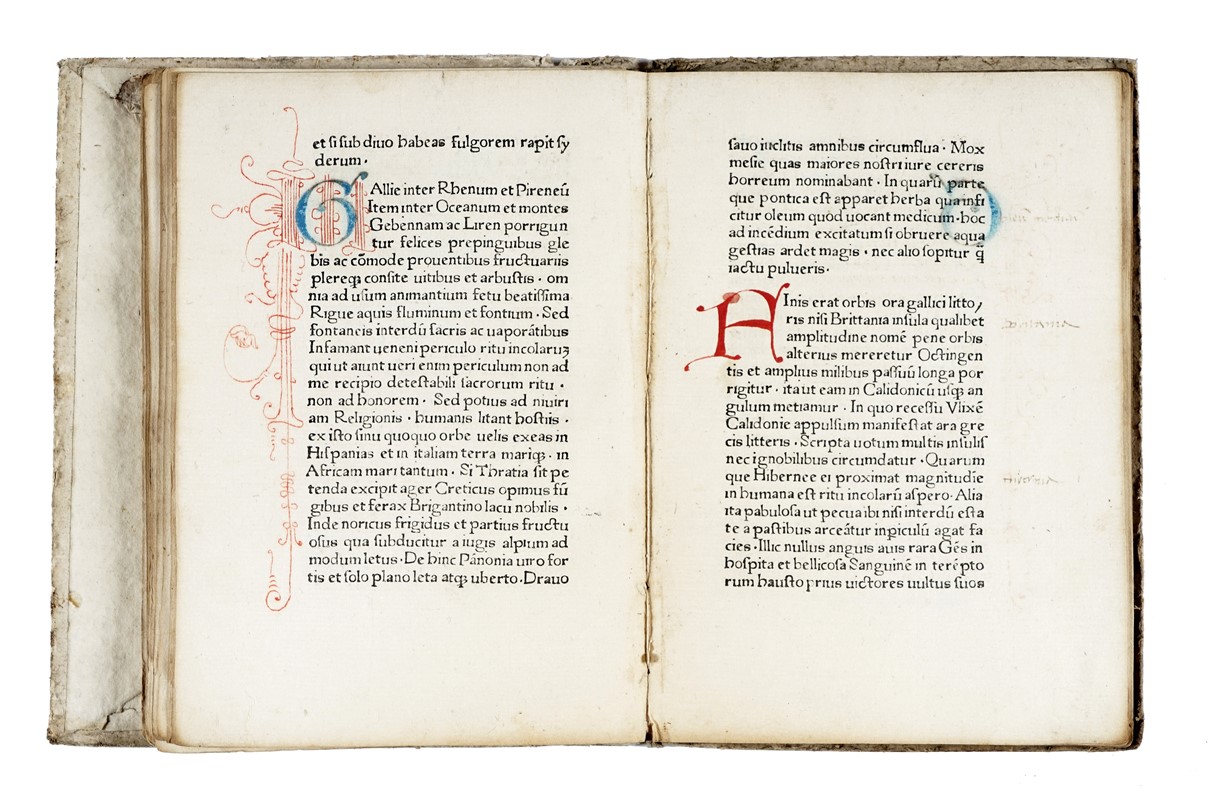 et si sub diuo habeas fulgorem rapit sy
derum.
GAllie inter Rhenum et Pireneū
Item inter Oceanum et montes
Gebennam ac Liren porrigun
tur felices prepinguibus gle
bis ac cōmode prouentibus fructuariis
plereqꝫ consite uitibus et arbustis · om
nia ad usum animantium fetu beatissima
Rigue aquis fluminum et fontium · Sed
fontaneis interdū sacris ac uaporātibus
Infamant ueneni periculo ritu incolaruꝫ
qui ut aiunt ueri enim periculum non ad
me recipio detestabili sacrorum ritu ·
non ad honorem · Sed potius ad niuiri
am Religionis · humanis litant hostiis ·
ex isto sinu quoquo orbe uelis exeas in
Hispanias et in italiam terra mariqꝫ · in
Africam mari tantum · Si Thratia sit pe
tenda excipit ager Creticus opimus fū
gibus et ferax Brigantino lacu nobilis ·
Inde noricus frigidus et partius fructu
osus qua subducitur a iugis alpium ad
modum letus · De hinc Pānonia uiro for
tis et solo plano leta atqꝫ uberto · Drauo
sauo iuclitis amnibus circumflua · Mox
mesie quas maiores nostri iure cereris
horreum nominabant · In quarū parte
que pontica est apparet herba qua infi
citur oleum quod uocant medicum · hoc
ad incēdium excitatum si obruere aqua
gestias ardet magis · nec alio sopitur q̄
iactu pulueris ·
AInis erat orbis ora gallici litto/
ris nisi Brittania insula qualibet
amplitudine nomē pene orbis
alterius mereretur Octingen
tis et amplius milibus passuū longa por
rigitur · ita ut eam in Calidonicū usqꝫ an
gulum metiamur · In quo recessu Vlixē
Calidonie appulsum manifestat ara gre
cis litteris · Scripta uotum multis insulis
nec ignobilibus circumdatur · Quarum
Britannia
que Hibernee ei proximat magnitudie
Hibernia
in humana est ritu incolarū aspero · Alia
ita pabulosa ut pecua ibi nisi interdū esta
te a pastibus arceātur in piculū agat fa
cies · Illic nullus anguis auis rara Gēs in
hospita et bellicosa Sanguinē in terēpto
rum hausto prius uictores uultus suos